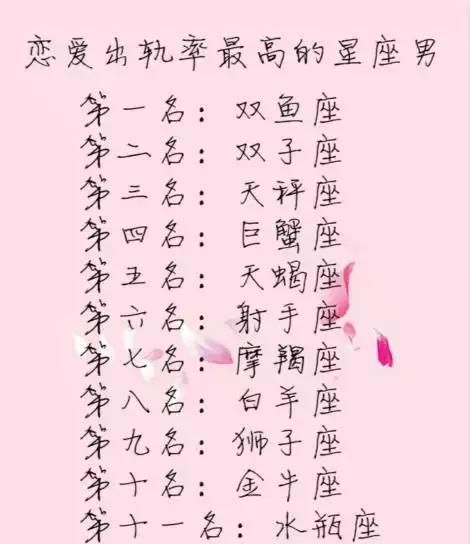 恋爱出轨率最高的星座男
第一名：双鱼座
第二名：双子座
第三名：天秤座
第四名：巨蟹座
第五名：天蝎座
第六名：射手座
第七名：摩羯座
第八名：白羊座
第九名：狮子座
第十名：金牛座
第十一名：水瓶座